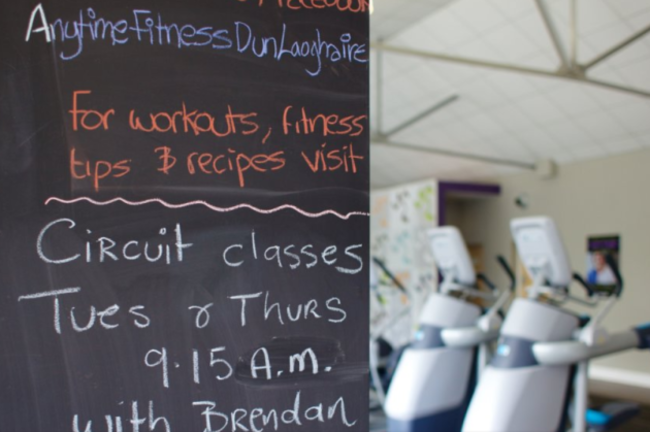 AnytimeFitnessDunLaoghaire
For workouts, fitness
tips & recipes visit
Circuit classes
Tues & Thurs
9.15 A.m.
with Brendan